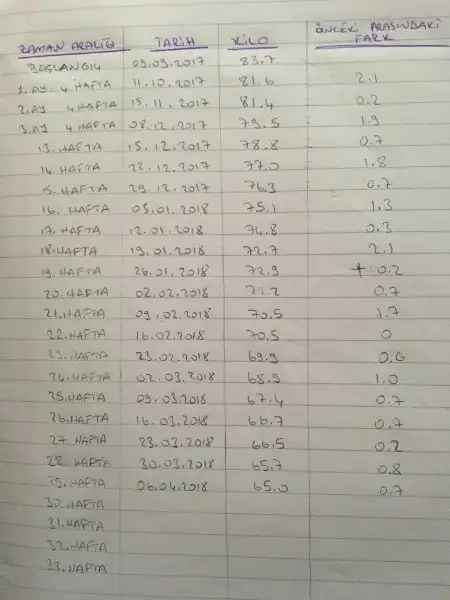 ZAMAN ARALIĞI TARİH KİLO ÖNCEKİ ARASINDAKİ FARK
BAŞLANGIÇ 09.09.2017 83.7
1. AY 4 HAFTA 11.10.2017 81.6 2.1
2. AY 4 HAFTA 15.11.2017 81.4 0.2
3. AY 4 HAFTA 08.12.2017 79.5 1.9
13. HAFTA 15.12.2017 78.8 0.7
14. HAFTA 22.12.2017 77.0 1.8
15. HAFTA 29.12.2017 76.3 0.7
16. HAFTA 05.01.2018 75.1 1.3
17. HAFTA 12.01.2018 74.8 0.3
18. HAFTA 19.01.2018 72.7 2.1
19. HAFTA 26.01.2018 72.9 + 0.2
20. HAFTA 02.02.2018 72.2 0.7
21. HAFTA 09.02.2018 70.5 1.7
22. HAFTA 16.02.2018 70.5 0
23. HAFTA 23.02.2018 69.9 0.6
24. HAFTA 02.03.2018 68.9 1.0
25. HAFTA 09.03.2018 67.4 0.7
26. HAFTA 16.03.2018 66.7 0.7
27. HAFTA 23.03.2018 66.5 0.2
28. HAFTA 30.03.2018 65.7 0.8
29. HAFTA 06.04.2018 65.0 0.7
30. HAFTA
31. HAFTA
32. HAFTA
33. HAFTA